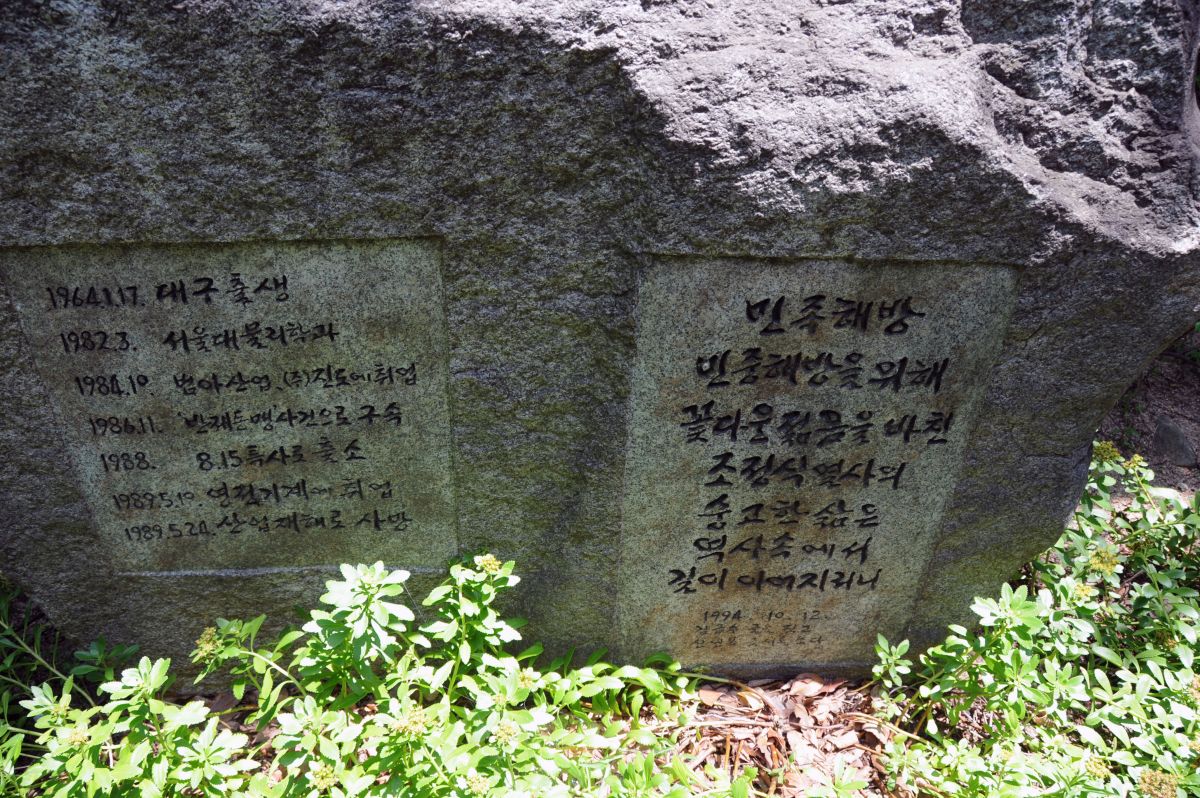 1964.1.17. 대구출생
1982.3. 서울대물리학과
1984.10 범아산업, (주)진도에취업
1986.11. '반제동맹'사건으로 구속
1988. 8.15특사로 출소
1989.5.10. 연진기계에취업
1989.5.24. 산업재해로 사망
민족해방
민중해방을위해
꽃다운젊음을 바친
조정식열사의
숭고한 삶은
역사속에서
길이 이어지리니
1994. 10. 12.